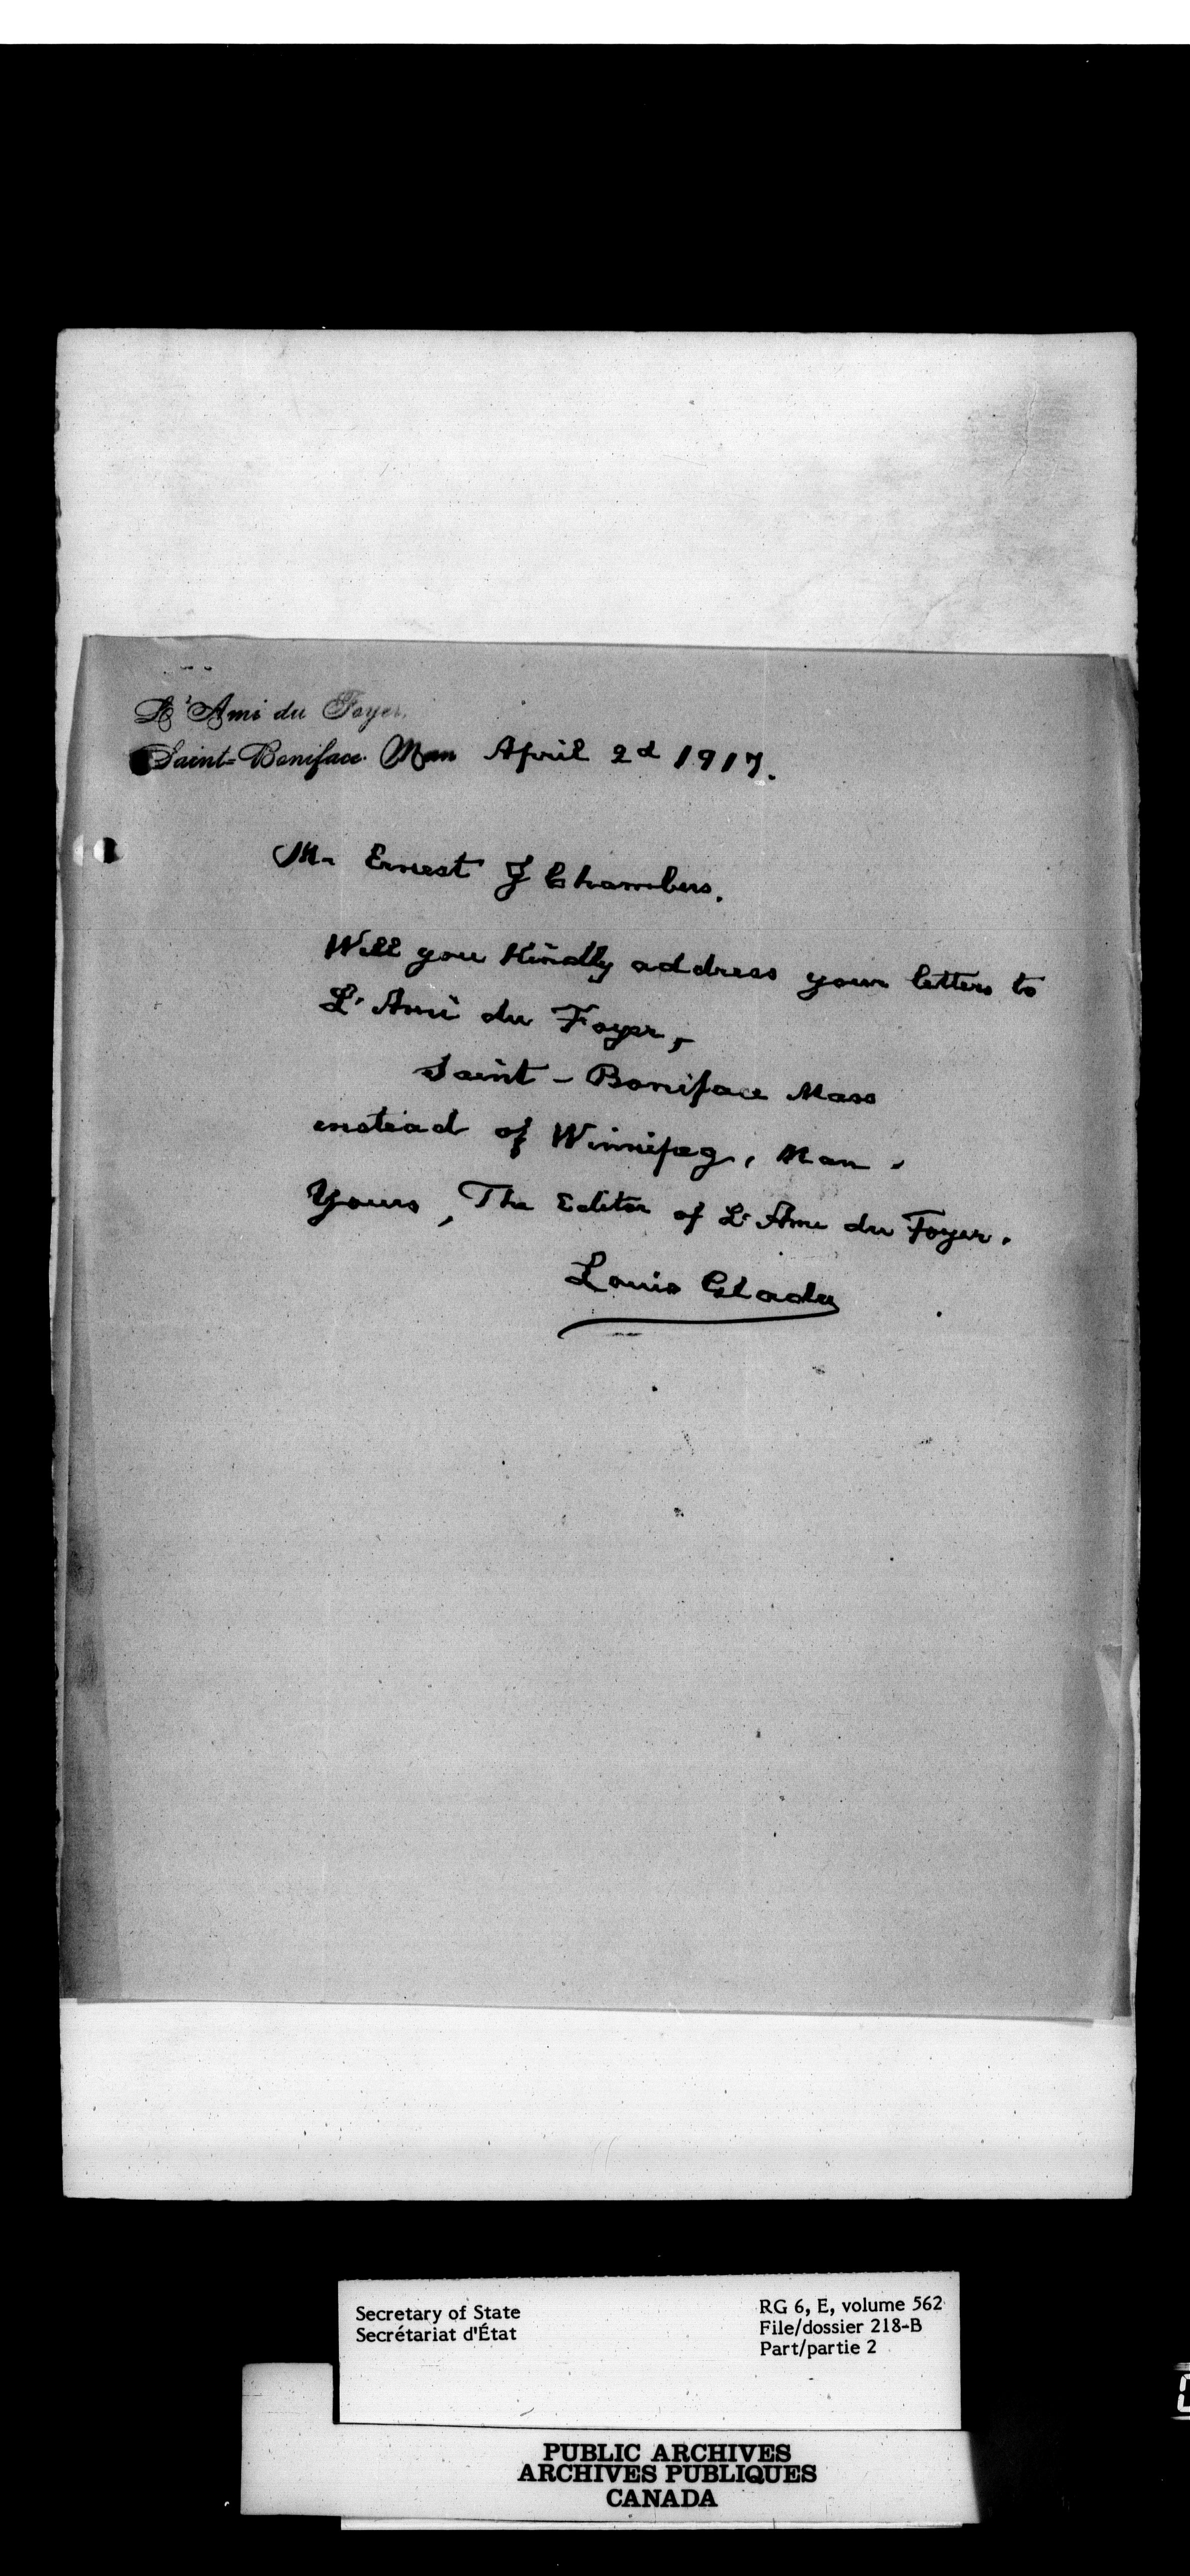 L'Ami du Foyer.
Saint-Boniface. Man April 2d 1917.
Mr Ernest J Chambers.
Will you Kindly address your letters to
L'Ami du Foyer,
Saint-Boniface Mass
instead of Winnipeg, Man.
Yours, The Editor of L'Ami du Foyer.
Louis Gladu
Secretary of State
Secrétariat d'État
RG 6, E, volume 562
File/dossier 218-B
Part/partie 2
PUBLIC ARCHIVES
ARCHIVES PUBLIQUES
CANADA